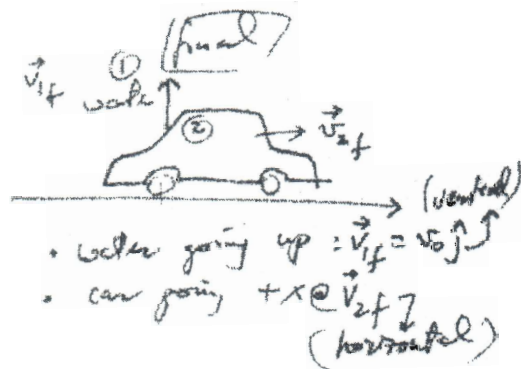 final
①
v⃗₁f
water
②
v⃗₂f
(vertical)
• water going up : v⃗₁f = v₀ ĵ
• car going +x @ v⃗₂f
(horizontal)